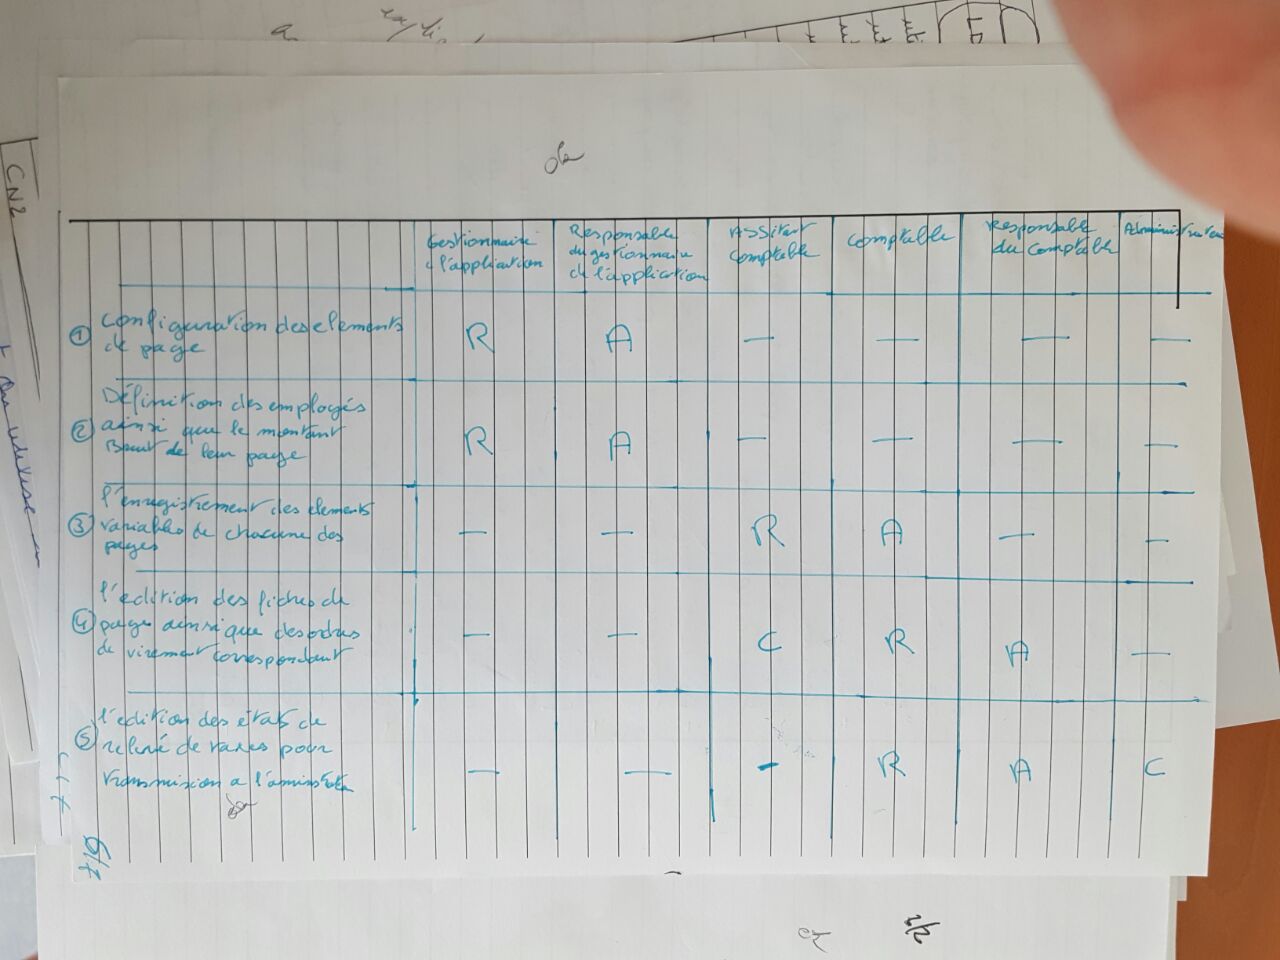 Gestionnaire
d l'application
Responsable
du gestionnaire
de l'application
Assitant
comptable
comptable
Responsable
du comptable
① configuration des elements
de page
R A — — — —
Définition des employés
② ainsi que le montant
Brut de leur page
R A — — — —
l'enregistrement des elements
③ variables de chacune des
pages
— — R A — —
l'edition des fiches de
④ page ainsi que des ordres
de virement correspondant
— — C R A —
l'edition des etats de
⑤ relevé de taxes pour
transmission a l'
— — - R A C
6/7
CN2